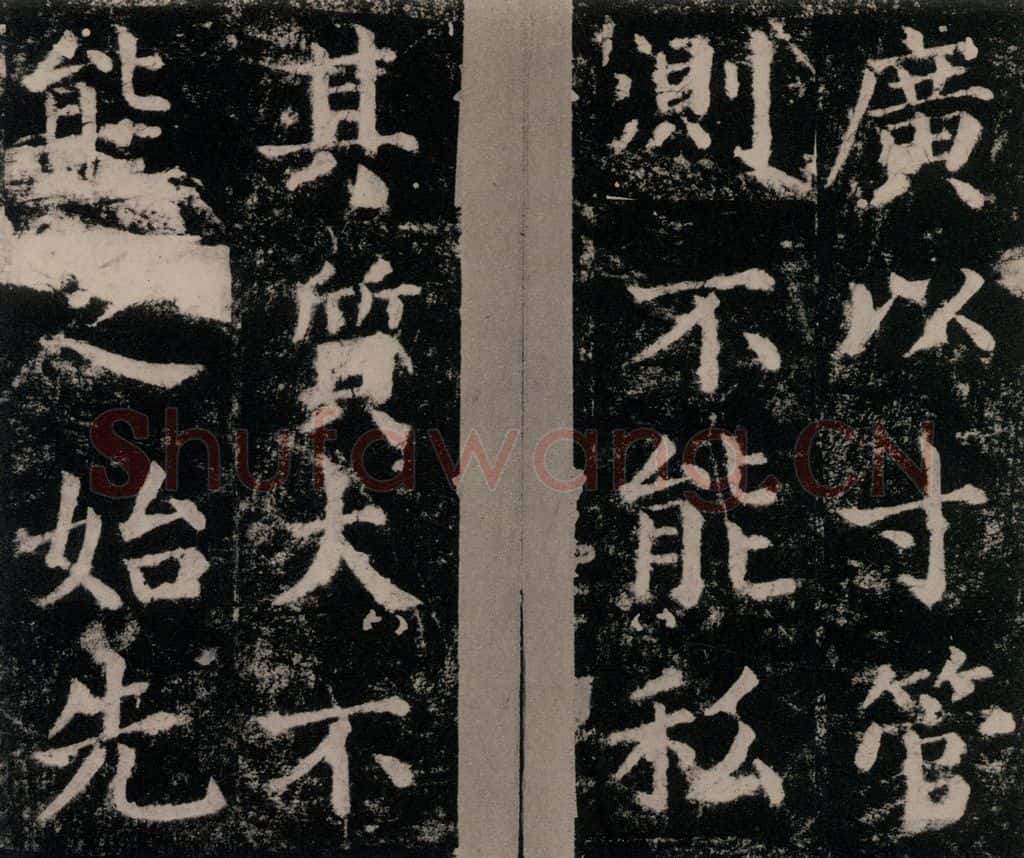 廣以寸管
測不能私
其質大不
能之始先
Shufawang.CN